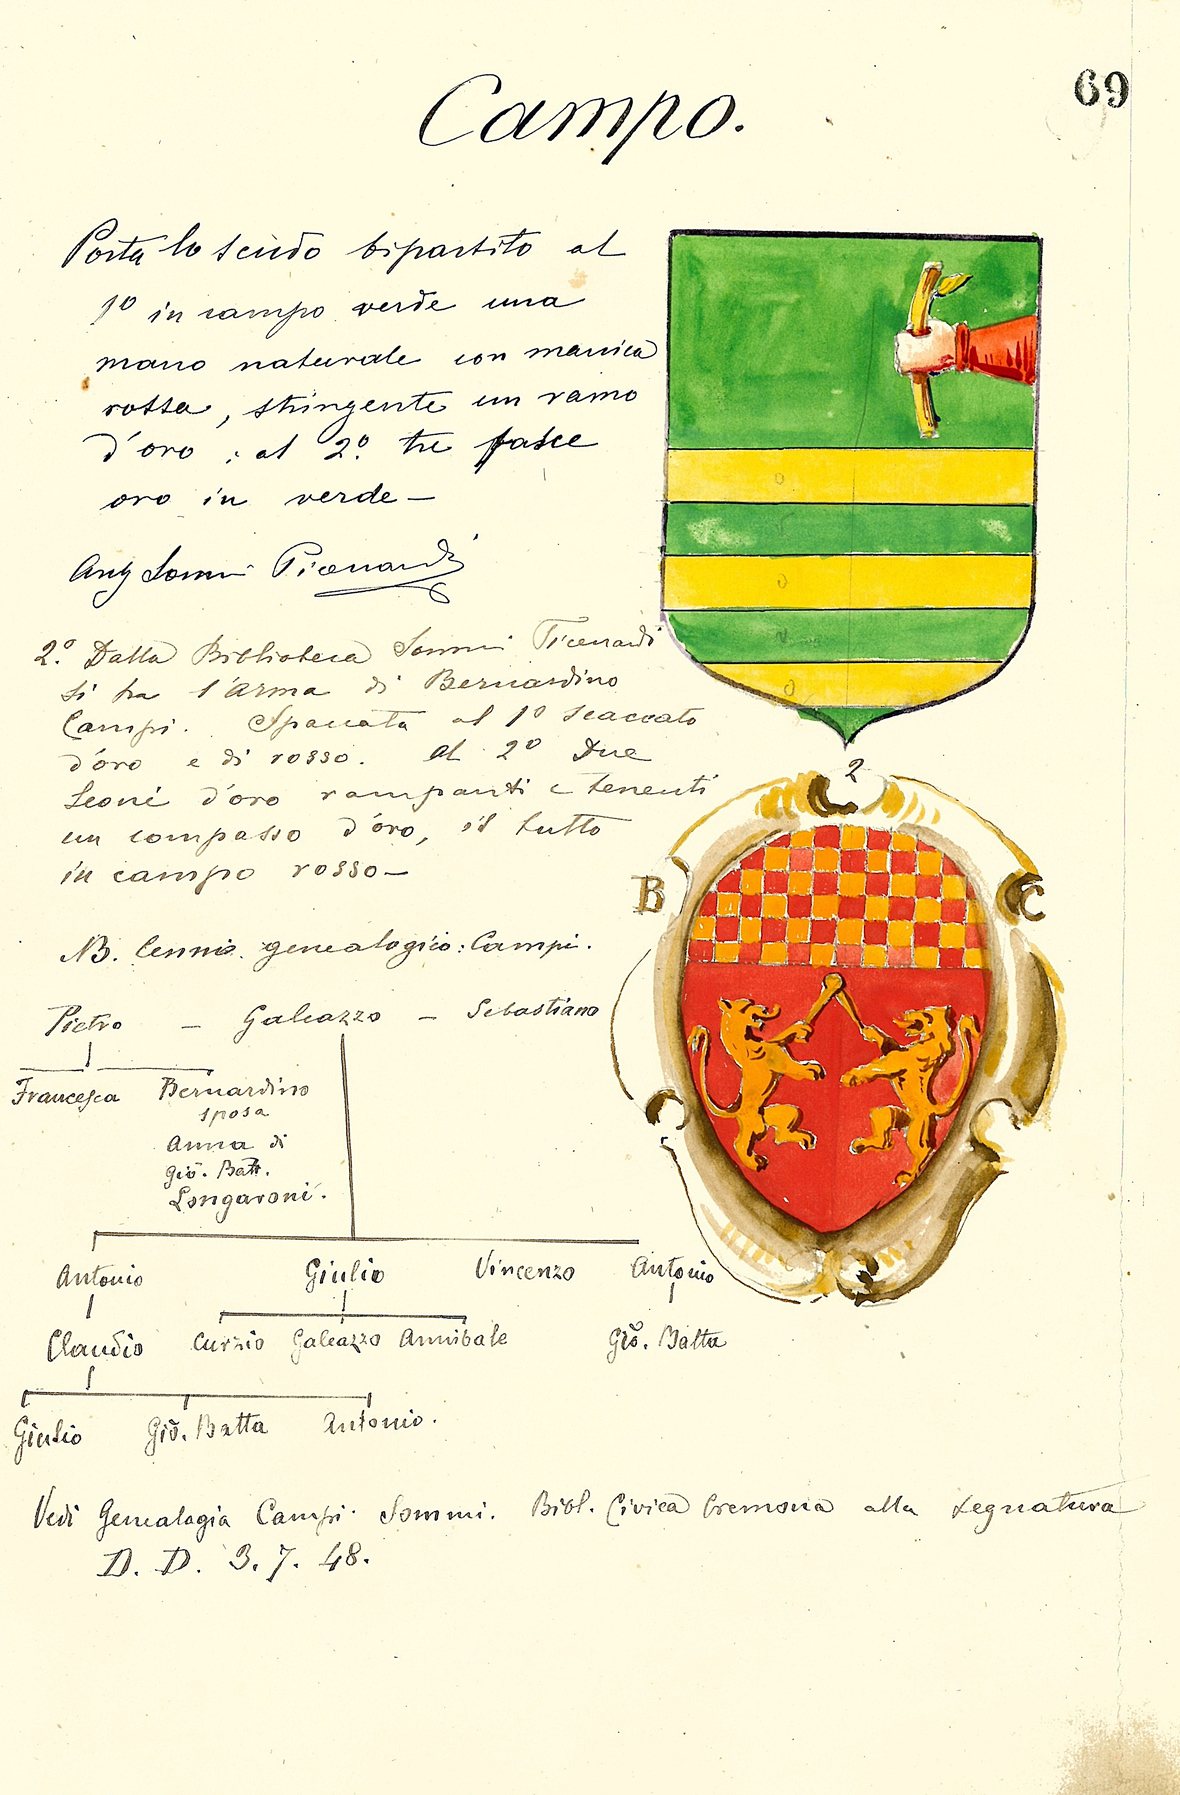 69
Campo.
Porta lo scudo bipartito al
1º in campo verde una
mano naturale con manica
rossa, stringente un ramo
d'oro; al 2º. tre fasce
oro in verde—
Sommi Picenardi
2.º Dalla Biblioteca Sommi Picenardi
si ha l'arma di Bernardino
Campi. Spaccata al 1º scaccato
d'oro e di rosso. Al 2º Due
Leoni d'oro rampanti e tenenti
un compasso d'oro, il tutto
in campo rosso—
2
B C
NB. Cennis. genealogico: Campi.
Pietro — Galeazzo — Sebastiano
Francesca Bernardino
sposa
Anna di
Gio. Batt.
Longaroni.
Antonio Giulio Vincenzo Antonio
Claudio Curzio Galeazzo Annibale Gio. Batta
Giulio Gio. Batta Antonio.
Vedi Genealogia Campi. Sommi. Bibl. Civica Cremona alla segnatura
D. D. 3. 7. 48.